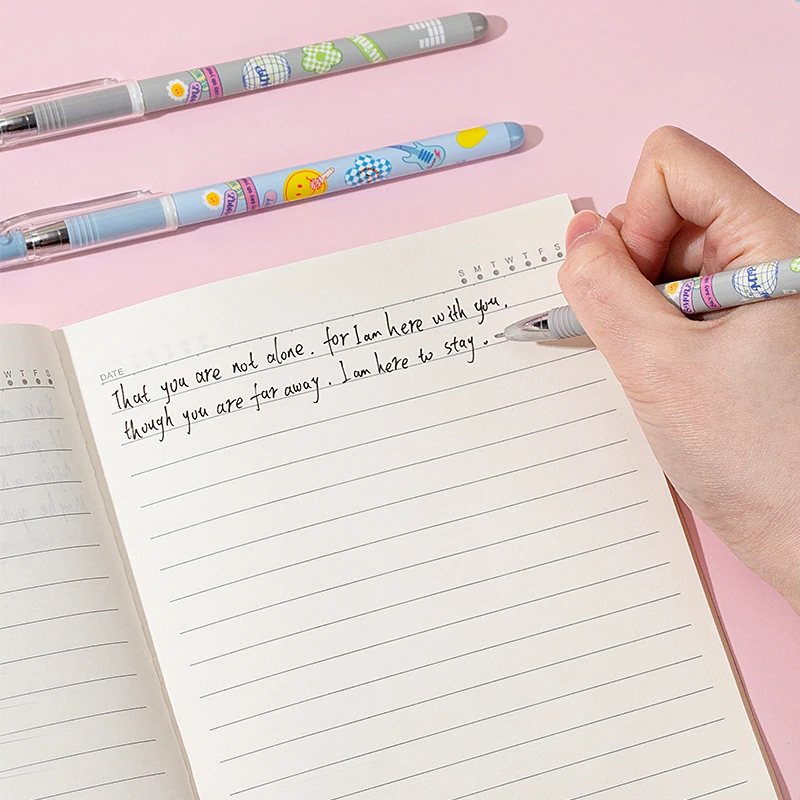 S M T W T F S
DATE
That you are not alone. for I am here with you.
though you are far away. I am here to stay.
W T F S